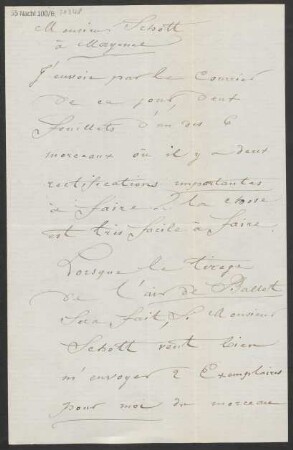 55 Nachl 100/B,
Monsieur Schott
à Mayence
J'envoie par le Courrier
de ce jour, deux
feuillets d'un des 6
morceaux où il y a deux
rectifications importantes
à faire. La chose
est très facile à faire.
Lorsque le tirage
de l'air de Ballet
sera fait, si Monsieur
Schott veut bien
m'envoyer 2 Exemplaires
pour moi du morceau